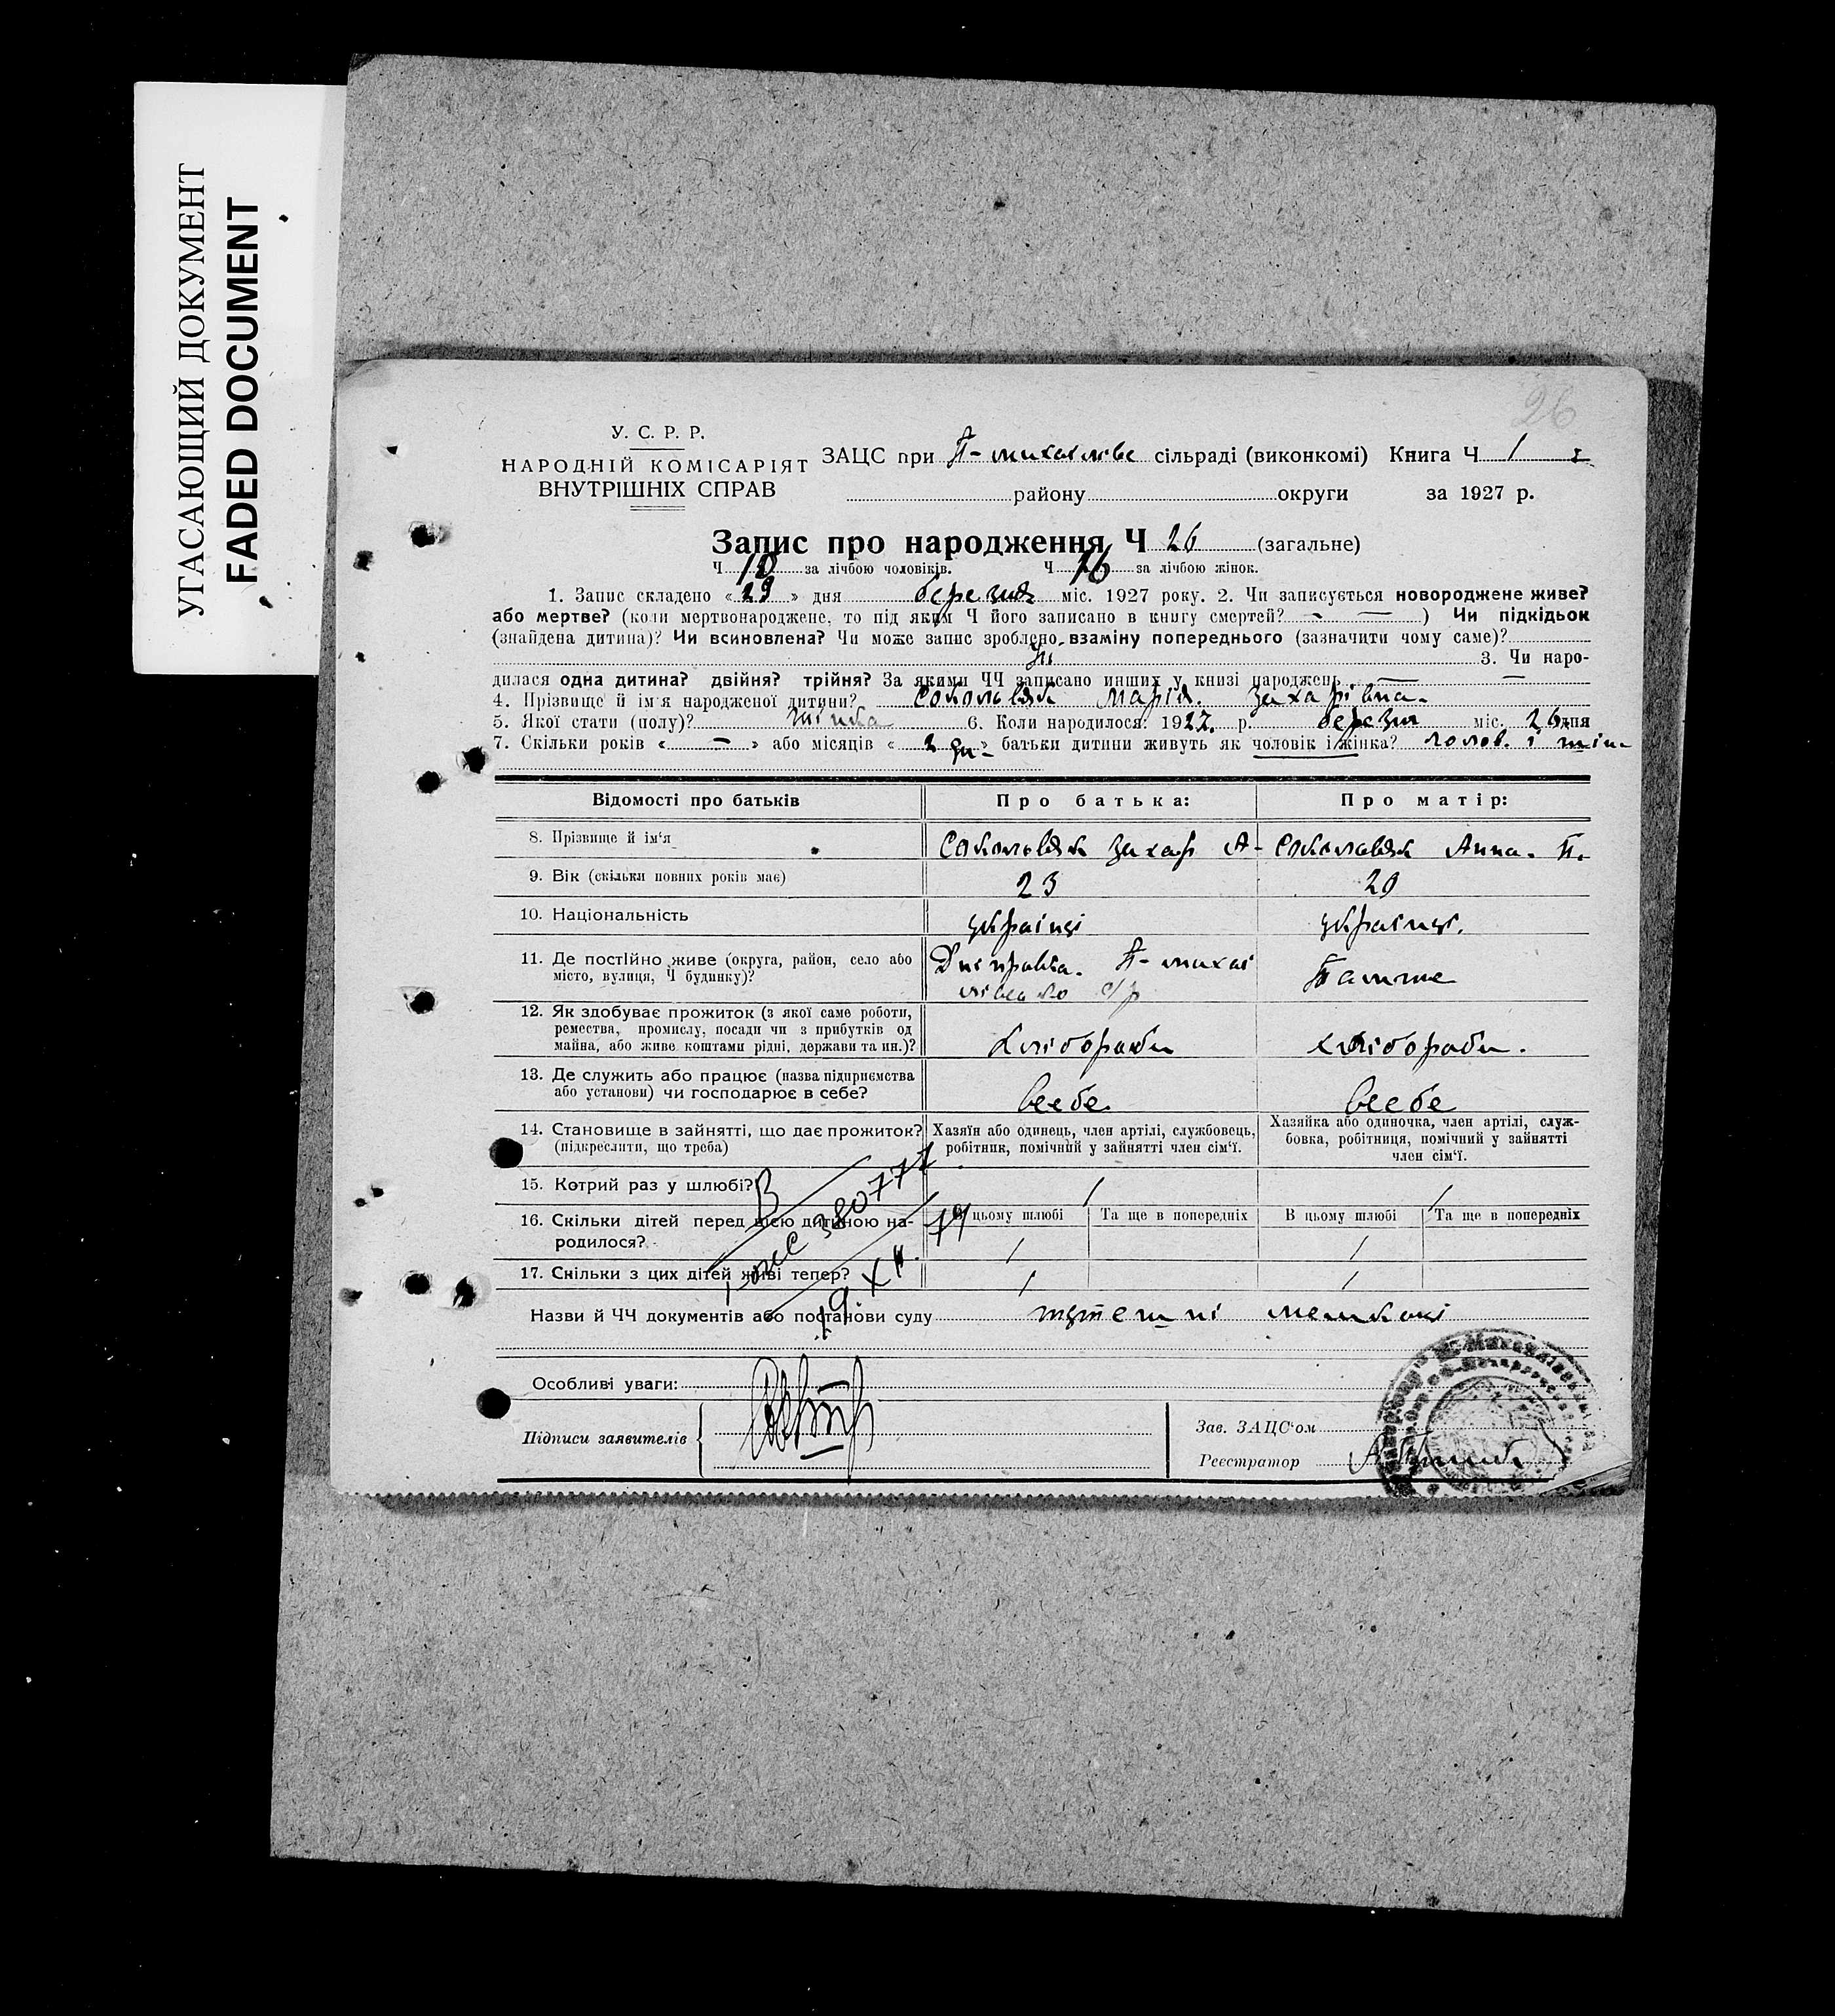 УГАСАЮЩИЙ ДОКУМЕНТ
FADED DOCUMENT
26
У. С. Р. Р.
НАРОДНІЙ КОМІСАРІЯТ
ВНУТРІШНІХ СПРАВ
ЗАЦС при П- сільраді (виконкомі) Книга Ч 1
району округи за 1927 р.
Запис про народження Ч 26 (загальне)
Ч 10 за лічбою чоловіків. Ч 16 за лічбою жінок.
1. Запис складено « 29 » дня березня міс. 1927 року. 2. Чи записується новороджене живе?
або мертве? (коли мертвонароджене, то під яким Ч його записано в книгу смертей? — — ) Чи підкідьок
(знайдена дитина)? Чи всиновлена? Чи може запис зроблено, взаміну попереднього (зазначити чому саме)?
Ні 3. Чи наро-
дилася одна дитина? двійня? трійня? За якими ЧЧ записано инших у книзі народжень — —
4. Прізвище й ім'я народженої дитини? Соколовяк Марія. Захарівна.
5. Якої стати (полу)? жінка 6. Коли народилося: 1927. р. березня міс. 26 дня
7. Скільки років « — » або місяців « 2 » батьки дитини живуть як чоловік і жінка? чолов. і жін-
Відомості про батьків
Про батька:
Про матір:
8. Прізвище й ім'я
Соколовяк Захар А-
Соколовяк Анна. П.
9. Вік (скільки повних років має)
23
20
10. Національність
українці
українці.
11. Де постійно живе (округа, район, село або
місто, вулиця, Ч будинку)?
П- михай
лівсько с/р
Тамже
12. Як здобуває прожиток (з якої саме роботи,
ремества, промислу, посади чи з прибутків од
майна, або живе коштами рідні, держави та ин.)?
хлібороби
хлібороби.
13. Де служить або працює (назва підприємства
або установи) чи господарює в себе?
всебе
всебе
14. Становище в зайнятті, що дає прожиток?
(підкреслити, що треба)
Хазяїн або одинець, член артілі, службовець,
робітник, помічний у зайнятті член сім'ї.
Хазяйка або одиночка, член артілі, служ-
бовка, робітниця, помічний у зайнятті
член сім'ї.
15. Котрий раз у шлюбі?
1
1
16. Скільки дітей перед цією дитиною на-
родилося?
В цьому шлюбі
Та ще в попередніх
В цьому шлюбі
Та ще в попередніх
1
1
17. Скільки з цих дітей живі тепер?
1
1
Назви й ЧЧ документів або постанови суду тутешні мешканці
Особливі уваги:
Підписи заявителів
Зав. ЗАЦС'ом
Реєстратор